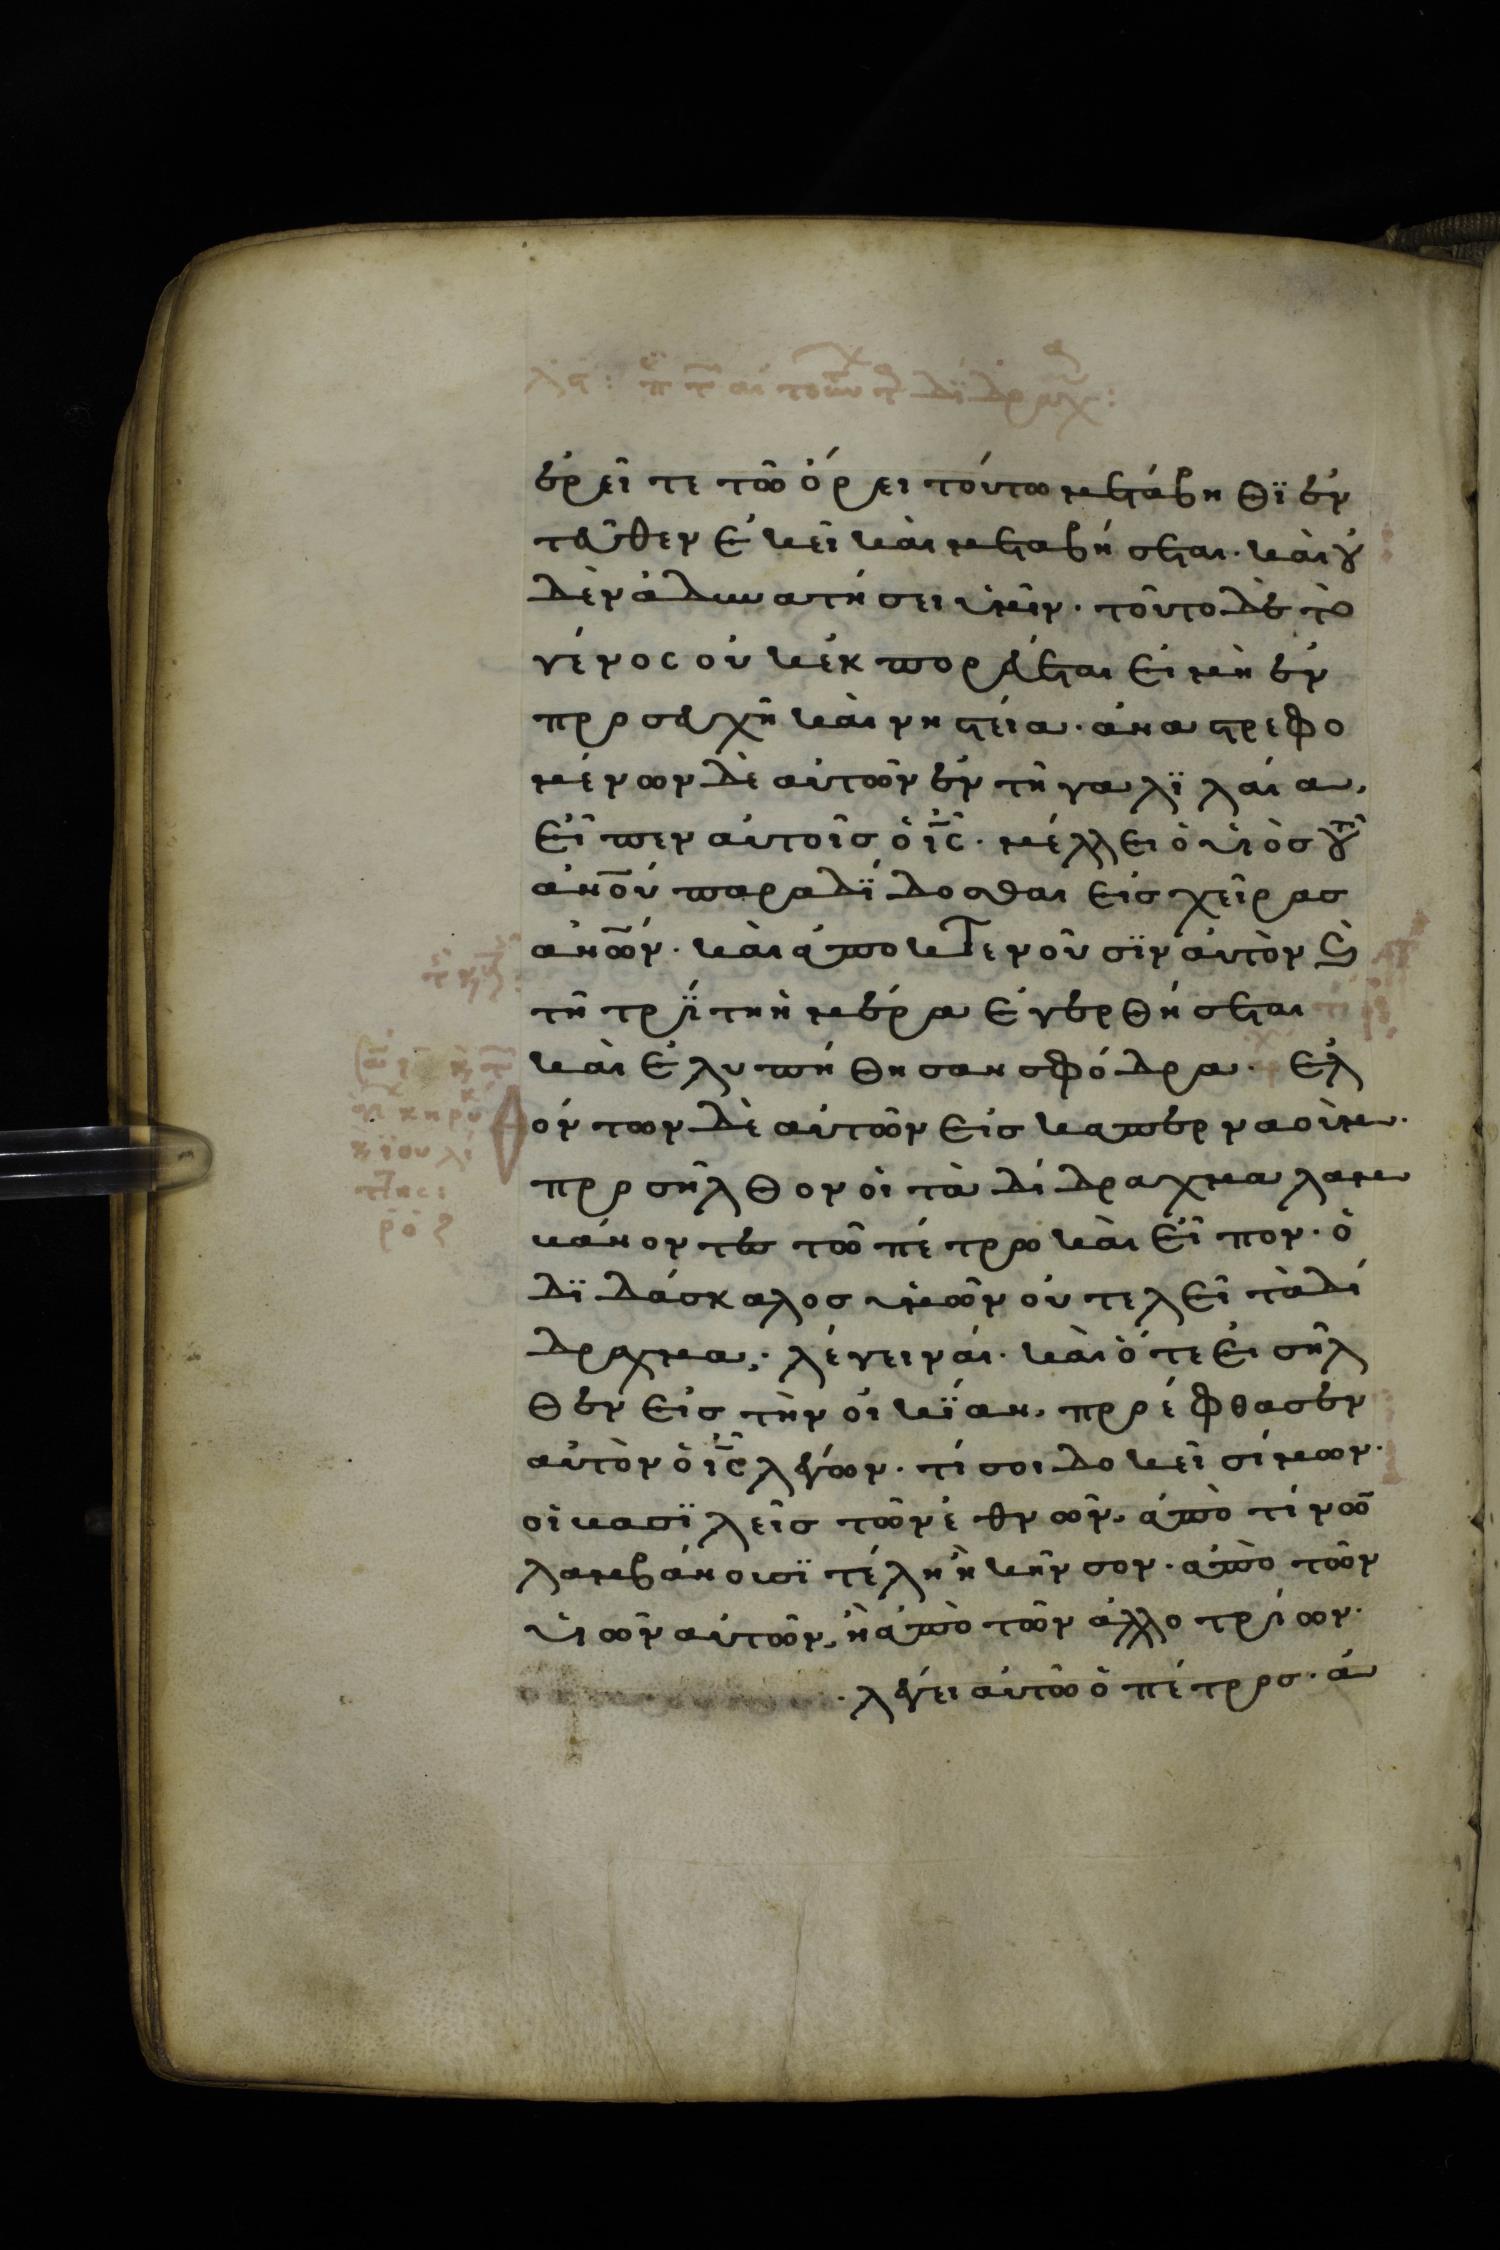 ἐρεῖτε τῶ ὄρει τούτω μετάβηθϊ ἐν
τεῦθεν ἐκεῖ καὶ μεταβήσεται· καὶ οὐ
δὲν ἀδυνατήσει ὑμῖν· τοῦτο δὲ τὸ
γένος οὐκ ἐκπορεύεται εἰ μὴ ἐν
προσευχῆ καὶ νηστεία· ἀναστρεφο
μένων δὲ αὐτῶν ἐν τῆ γαλϊλαία,
εἶπεν αὐτοῖς ὁ ις̅· μέλλει ὁ υἱὸς τοῦ
ανου̅ παραδΐδοσθαι εἰς χεῖρας
ανω̅ν· καὶ ἀποκτενοῦσϊν αὐτὸν καὶ
τῆ τρΐτη ἡμέρα ἐγερθήσεται
καὶ ἐλυπήθησαν σφόδρα· ἐλ
θόντων δὲ αὐτῶν εἰς καπερναοὺμ·
προσῆλθον οἱ τὰ δίδραχμα λαμ
βάνοντες τῶ πέτρω καὶ εἶπον· ὁ
δϊδάσκαλος ὑμῶν οὐ τελεῖ τὰ δί
δραχμα; λέγει ναί· καὶ ὅτε εἰσῆλ
θεν εἰς τὴν οἰκΐαν, προέφθασεν
αὐτὸν ὁ ις̅ λέγων· τί σοι δοκεῖ σίμων·
οἱ βασϊλεῖς τῶν ἐθνῶν, ἀπὸ τίνω
λαμβάνουσϊ τέλη ἢ κῆνσον· ἀπὸ τῶν
υἱῶν αὐτῶν, ἢ ἀπὸ τῶν ἀλλοτρίων·
· λέγει αὐτῶ ὁ πέτρος· ἀ